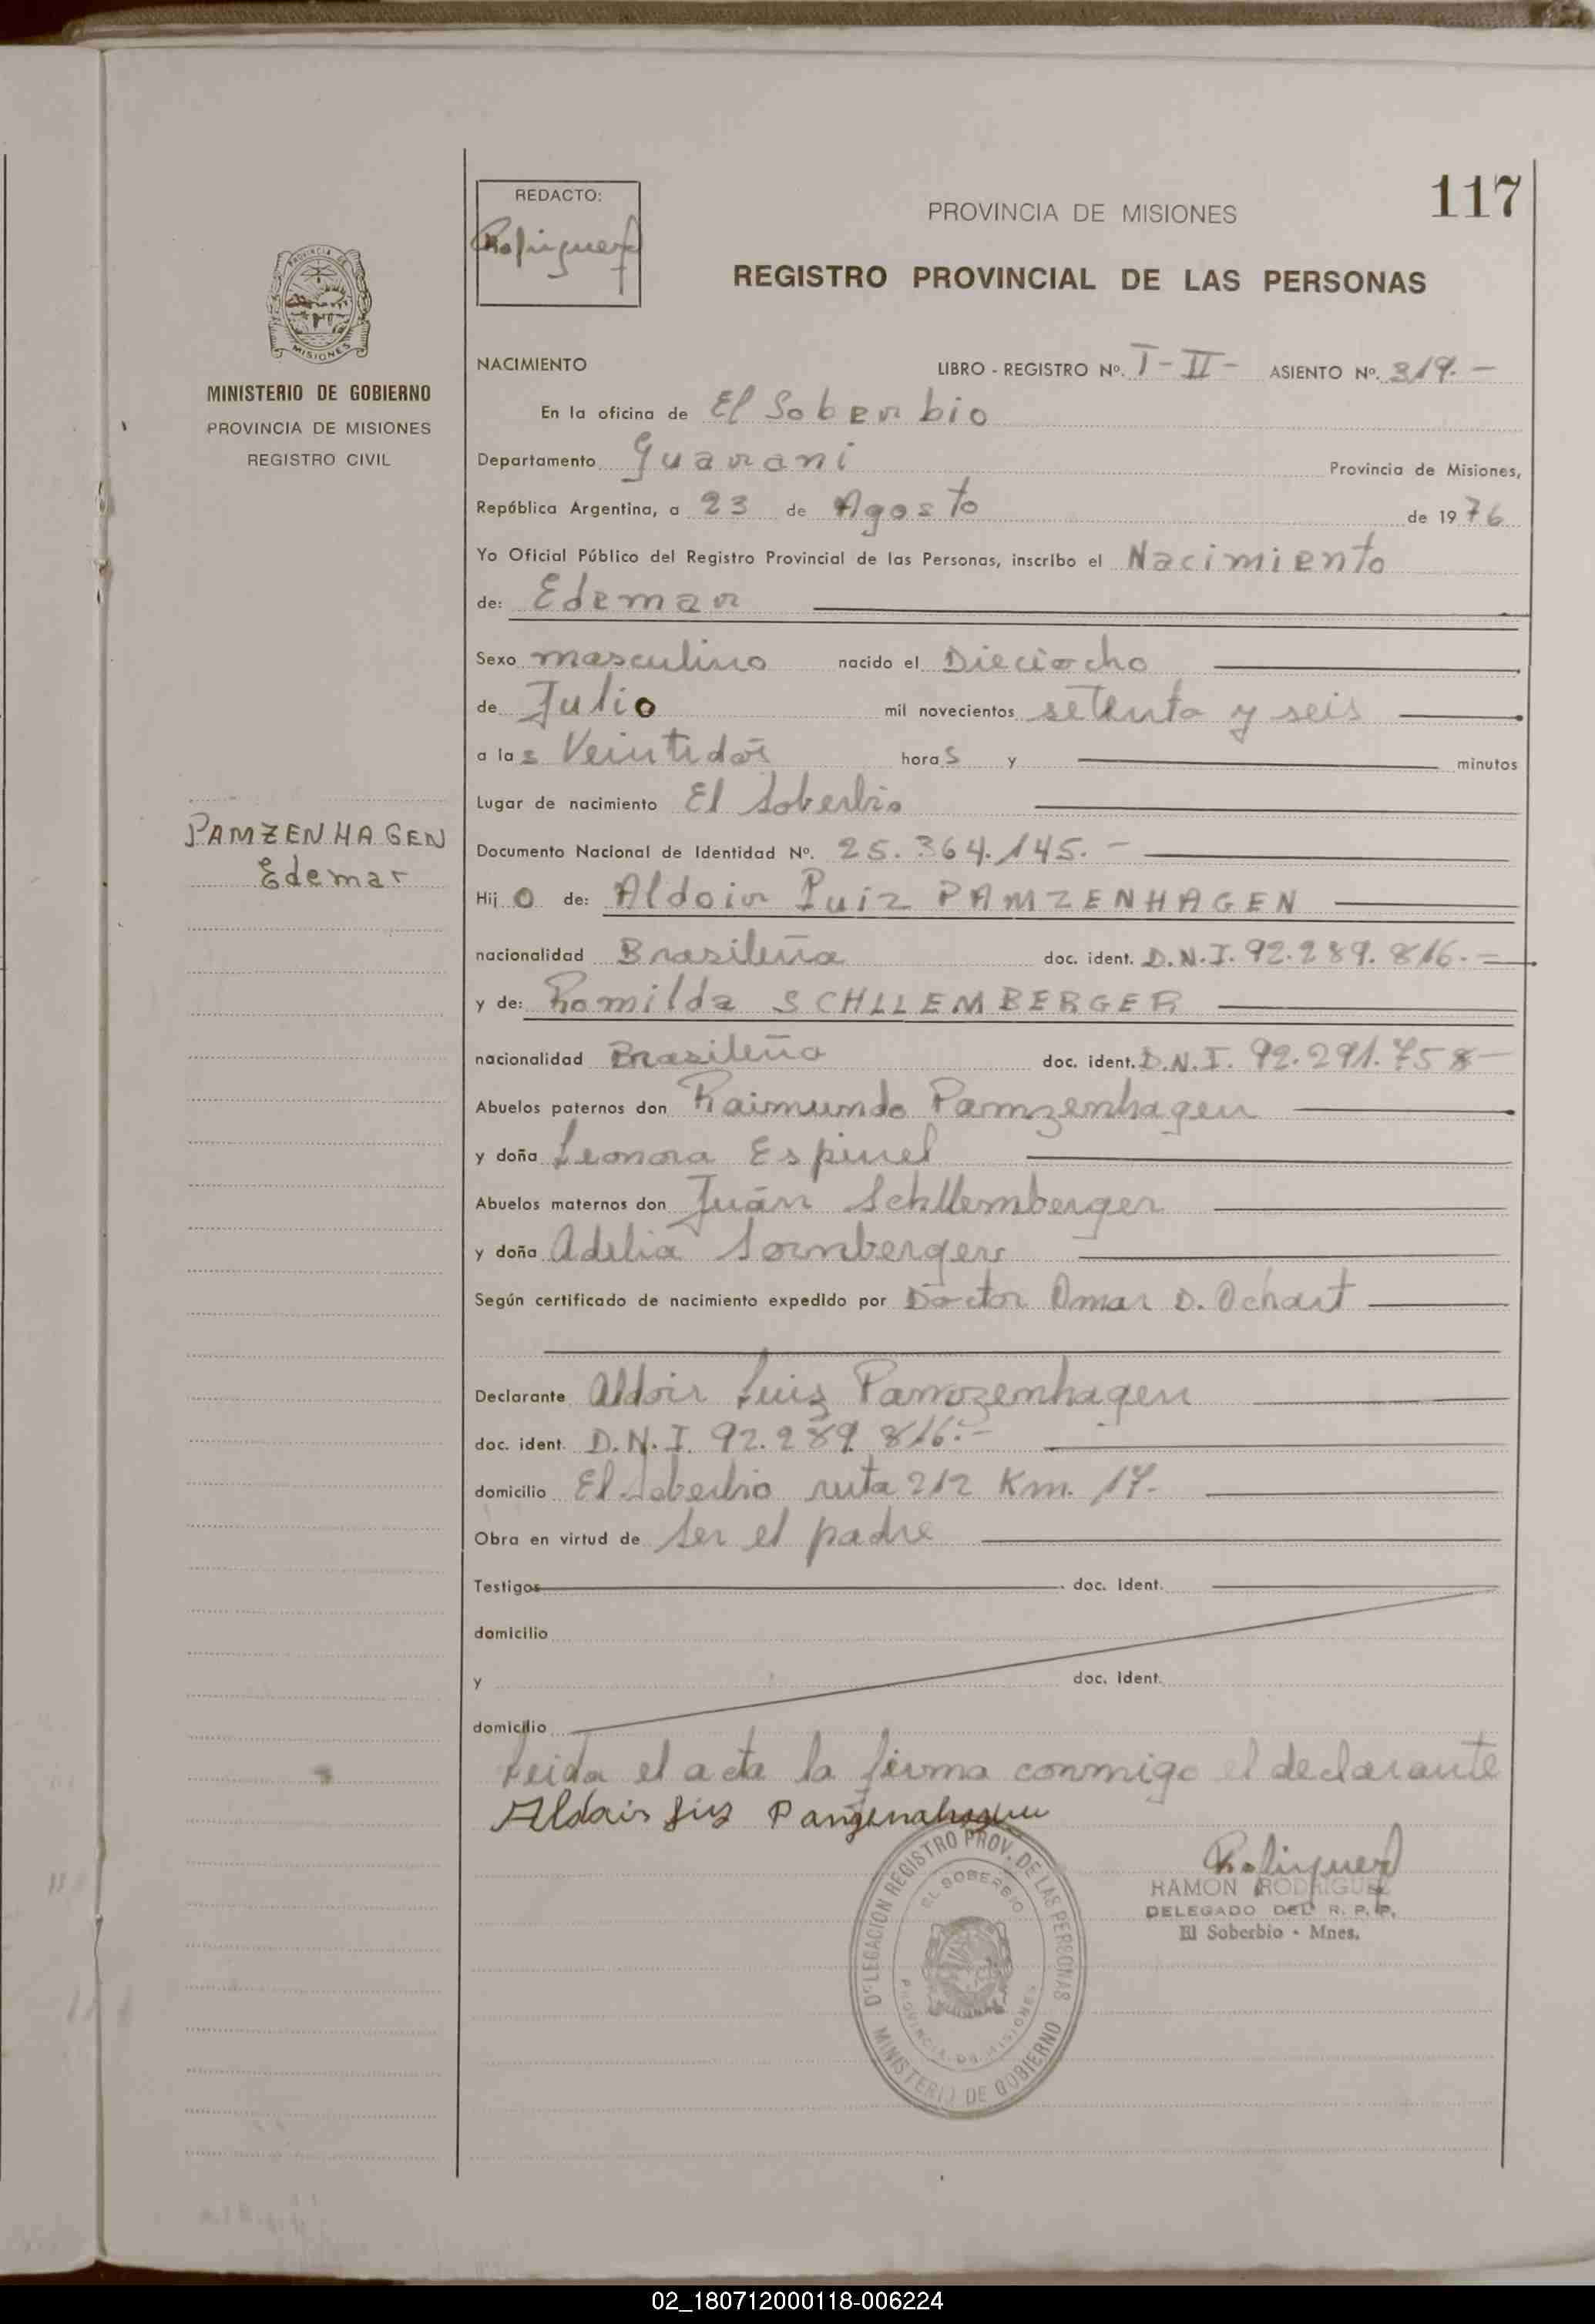 117
REDACTO:
PROVINCIA DE MISIONES
REGISTRO PROVINCIAL DE LAS PERSONAS
MISIONES
MINISTERIO DE GOBIERNO
PROVINCIA DE MISIONES
REGISTRO CIVIL
NACIMIENTO LIBRO - REGISTRO Nº. I - II - ASIENTO Nº. 319. -
En la oficina de El Soberbio
Departamento Guarani Provincia de Misiones,
República Argentina, a 23 de Agosto de 1976
Yo Oficial Público del Registro Provincial de las Personas, inscribo el Nacimiento
de: Edemar
Sexo masculino nacido el Dieciocho
de Julio mil novecientos setenta y seis
a las Veintidós horas y minutos
Lugar de nacimiento El Soberbio
PAMZENHAGEN
Edemar
Documento Nacional de Identidad Nº. 25.364.145. -
Hijo de: Aldoir Luiz PAMZENHAGEN
nacionalidad Brasileña doc. ident. D.N.I. 92.289.816.-
y de: Romilda SCHLLEMBERGER
nacionalidad Brasileña doc. ident. D.N.I. 92.291.758-
Abuelos paternos don Raimundo Pamzenhagen
y doña Leonora Espinel
Abuelos maternos don Juán Schllemberger
y doña Adelia Sornberger
Según certificado de nacimiento expedido por Doctor Omar D. Ochart
Declarante Aldoir Luiz Pamzenhagen
doc. ident. D.N.I. 92.289.816.-
domicilio El Soberbio ruta 212 Km. 17.
Obra en virtud de ser el padre
Testigos doc. ident.
domicilio
y doc. ident.
domicilio
Leida el acta la firma conmigo el declarante
DELEGACION REGISTRO PROV. DE LAS PERSONAS
EL SOBERBIO
PROVINCIA DE MISIONES
MINISTERIO DE GOBIERNO
RAMON RODRIGUEZ
DELEGADO DEL R. P. P.
El Soberbio - Mnes.
02_180712000118-006224